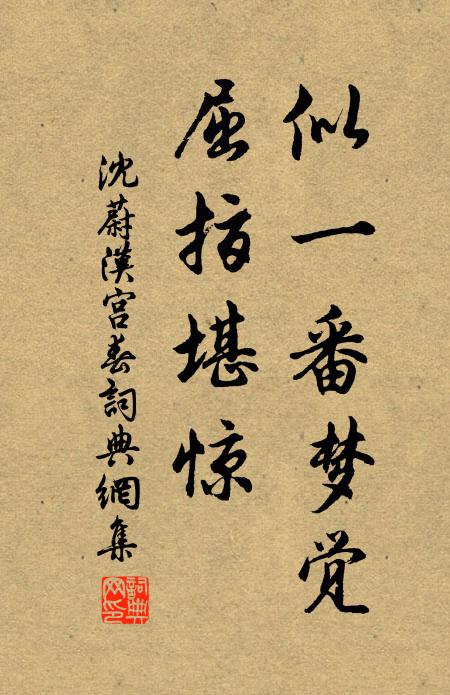 似一番梦觉
屈指堪惊
沈蔚漢宫春詞典網集
詞典网印